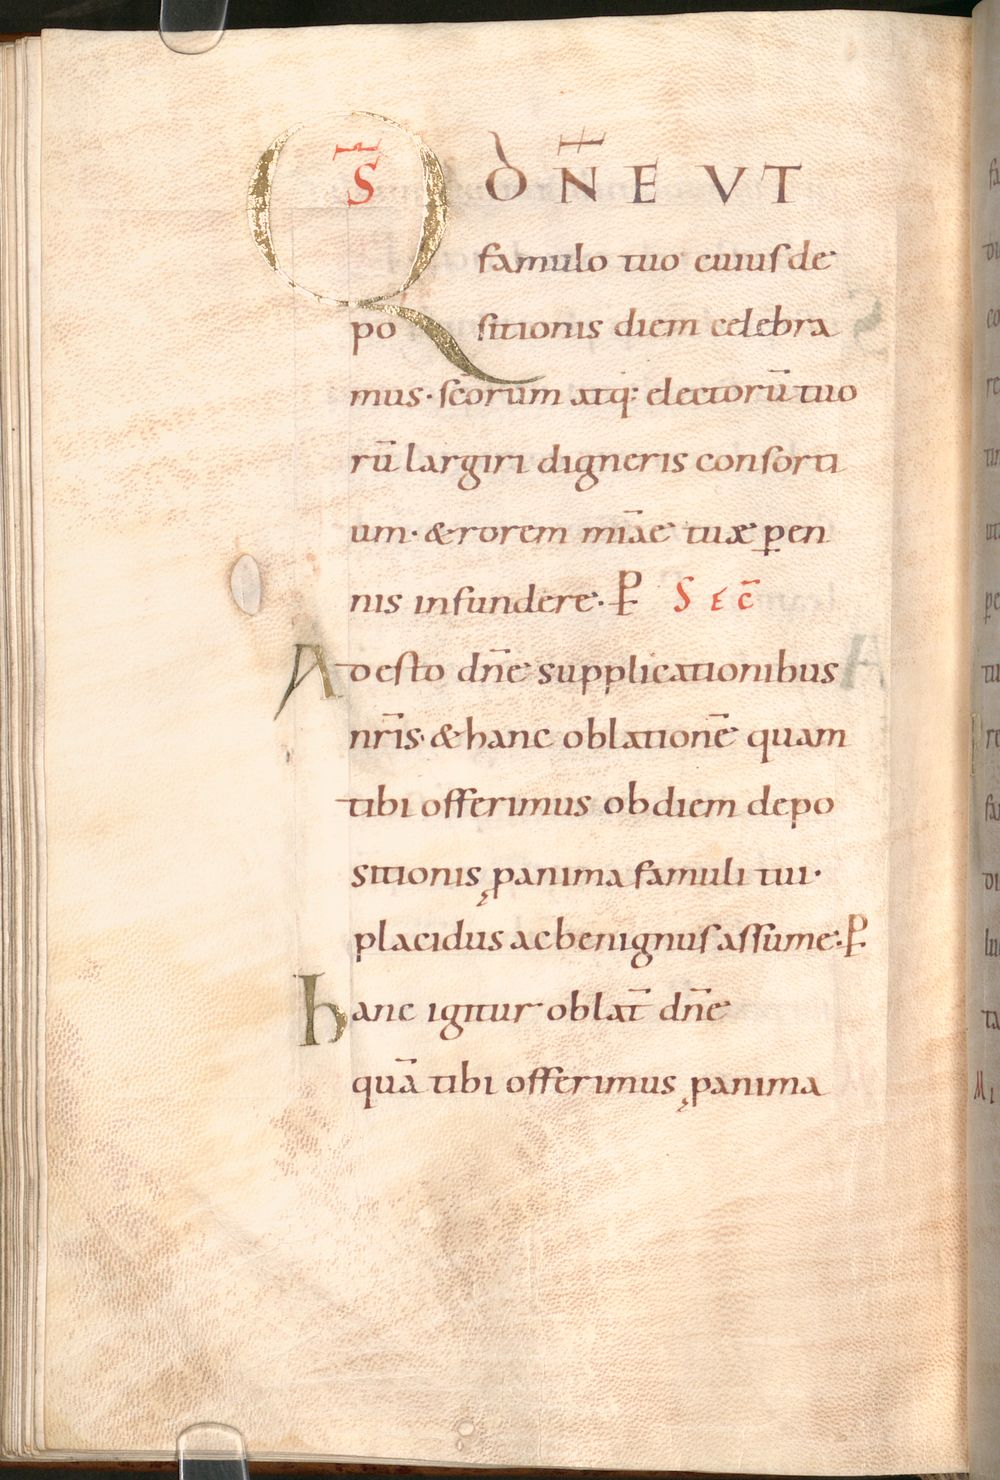 Q S̄ D N̄E VT
famulo tuo cuiusde
po sitionis diem celebra
mus· sc̄orum atq: electorū tuo
rū largiri digneris consorti
um· & rorem mīae tuæ ꝑen
nis infundere· ꝑ S E C̄
Adesto dn̄e supplicationibus
nr̄is· & hanc oblationē quam
tibi offerimus ob diem depo
sitionis ꝓ anima famuli tui·
placidus ac benignus assume· ꝑ
hanc igitur oblat̄ dn̄e
quā tibi offerimus ꝓ anima